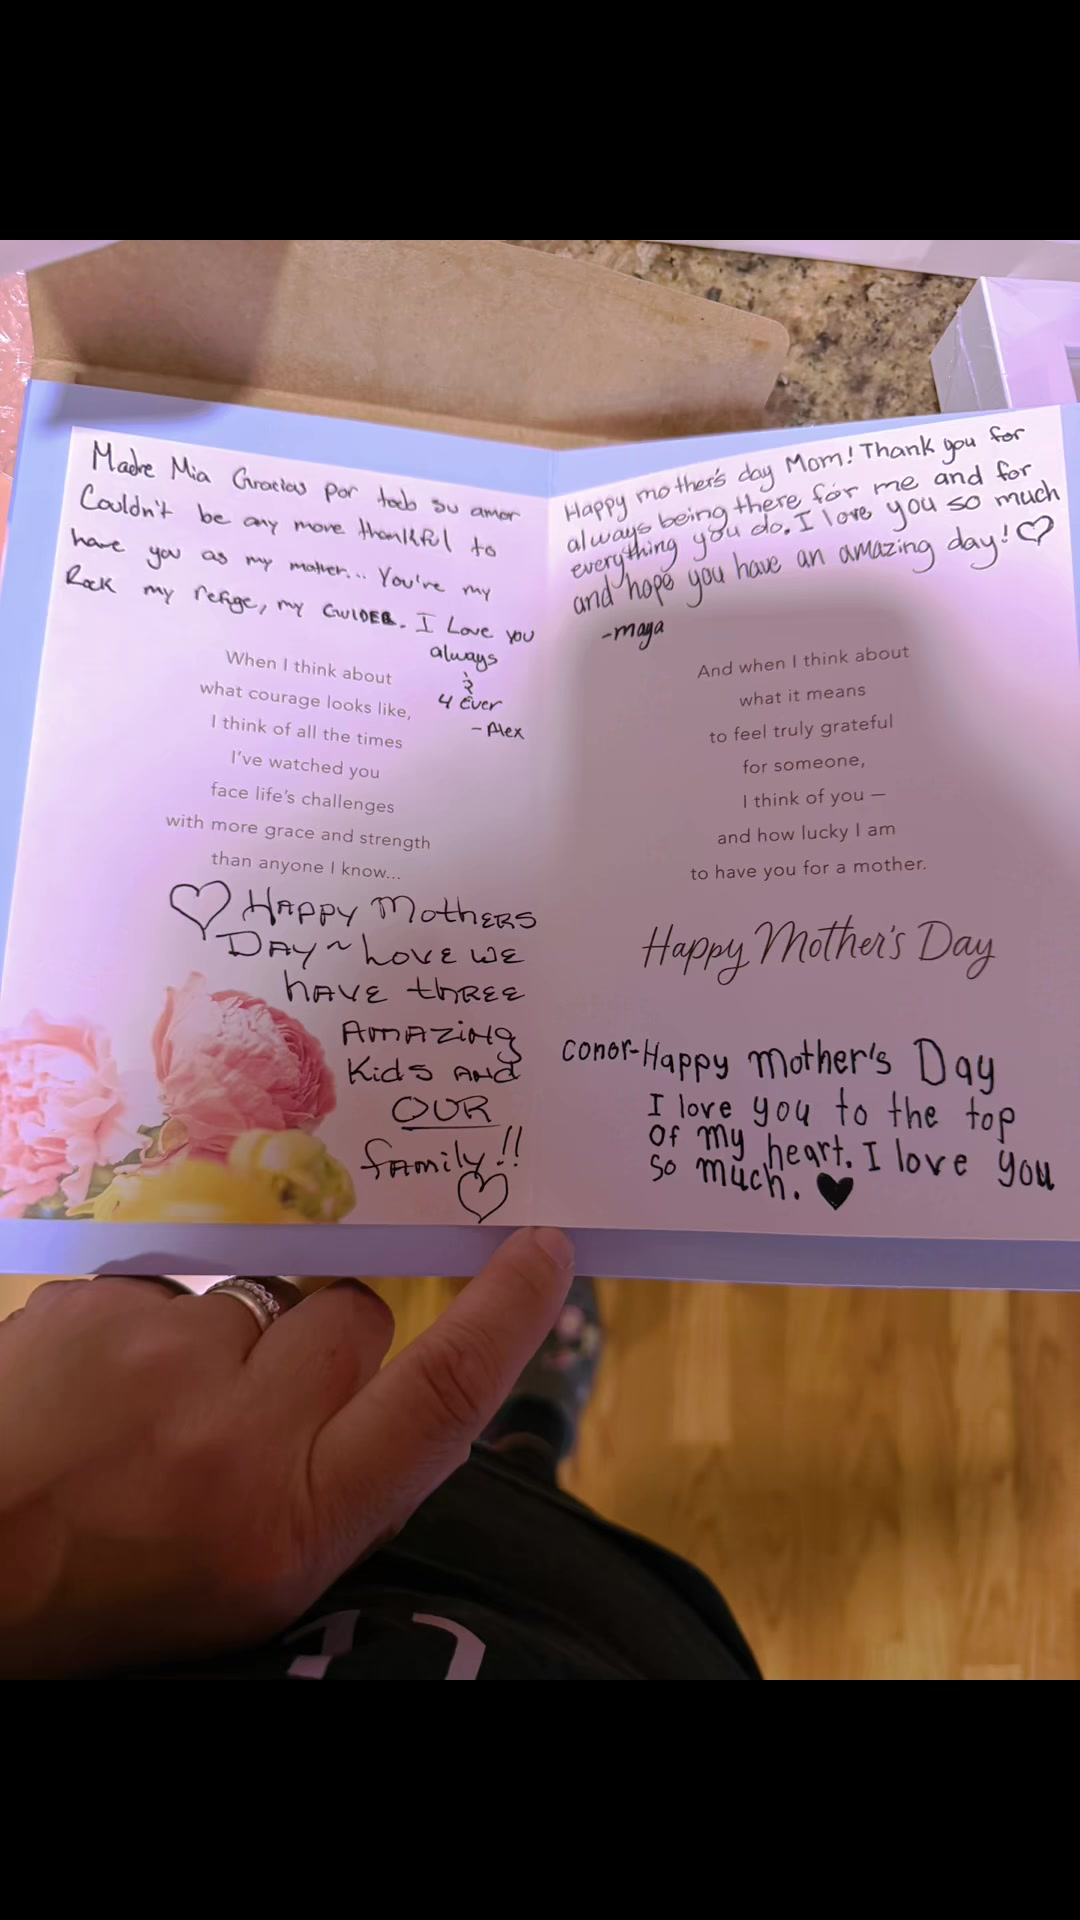 Madre Mia Gracias por todo su amor
Couldn't be any more thankful to
have you as my mother... You're my
Rock my refuge, my GUIDE. I Love you
always
&
4 Ever
- Alex
When I think about
what courage looks like,
I think of all the times
I've watched you
face life's challenges
with more grace and strength
than anyone I know...
Happy Mothers
Day ~ Love we
have three
Amazing
Kids and
OUR
family!!
Happy mother's day Mom! Thank you for
always being there for me and for
everything you do. I love you so much
and hope you have an amazing day!
-maya
And when I think about
what it means
to feel truly grateful
for someone,
I think of you —
and how lucky I am
to have you for a mother.
Happy Mother's Day
conor-Happy mother's Day
I love you to the top
Of my heart. I love you
so much.